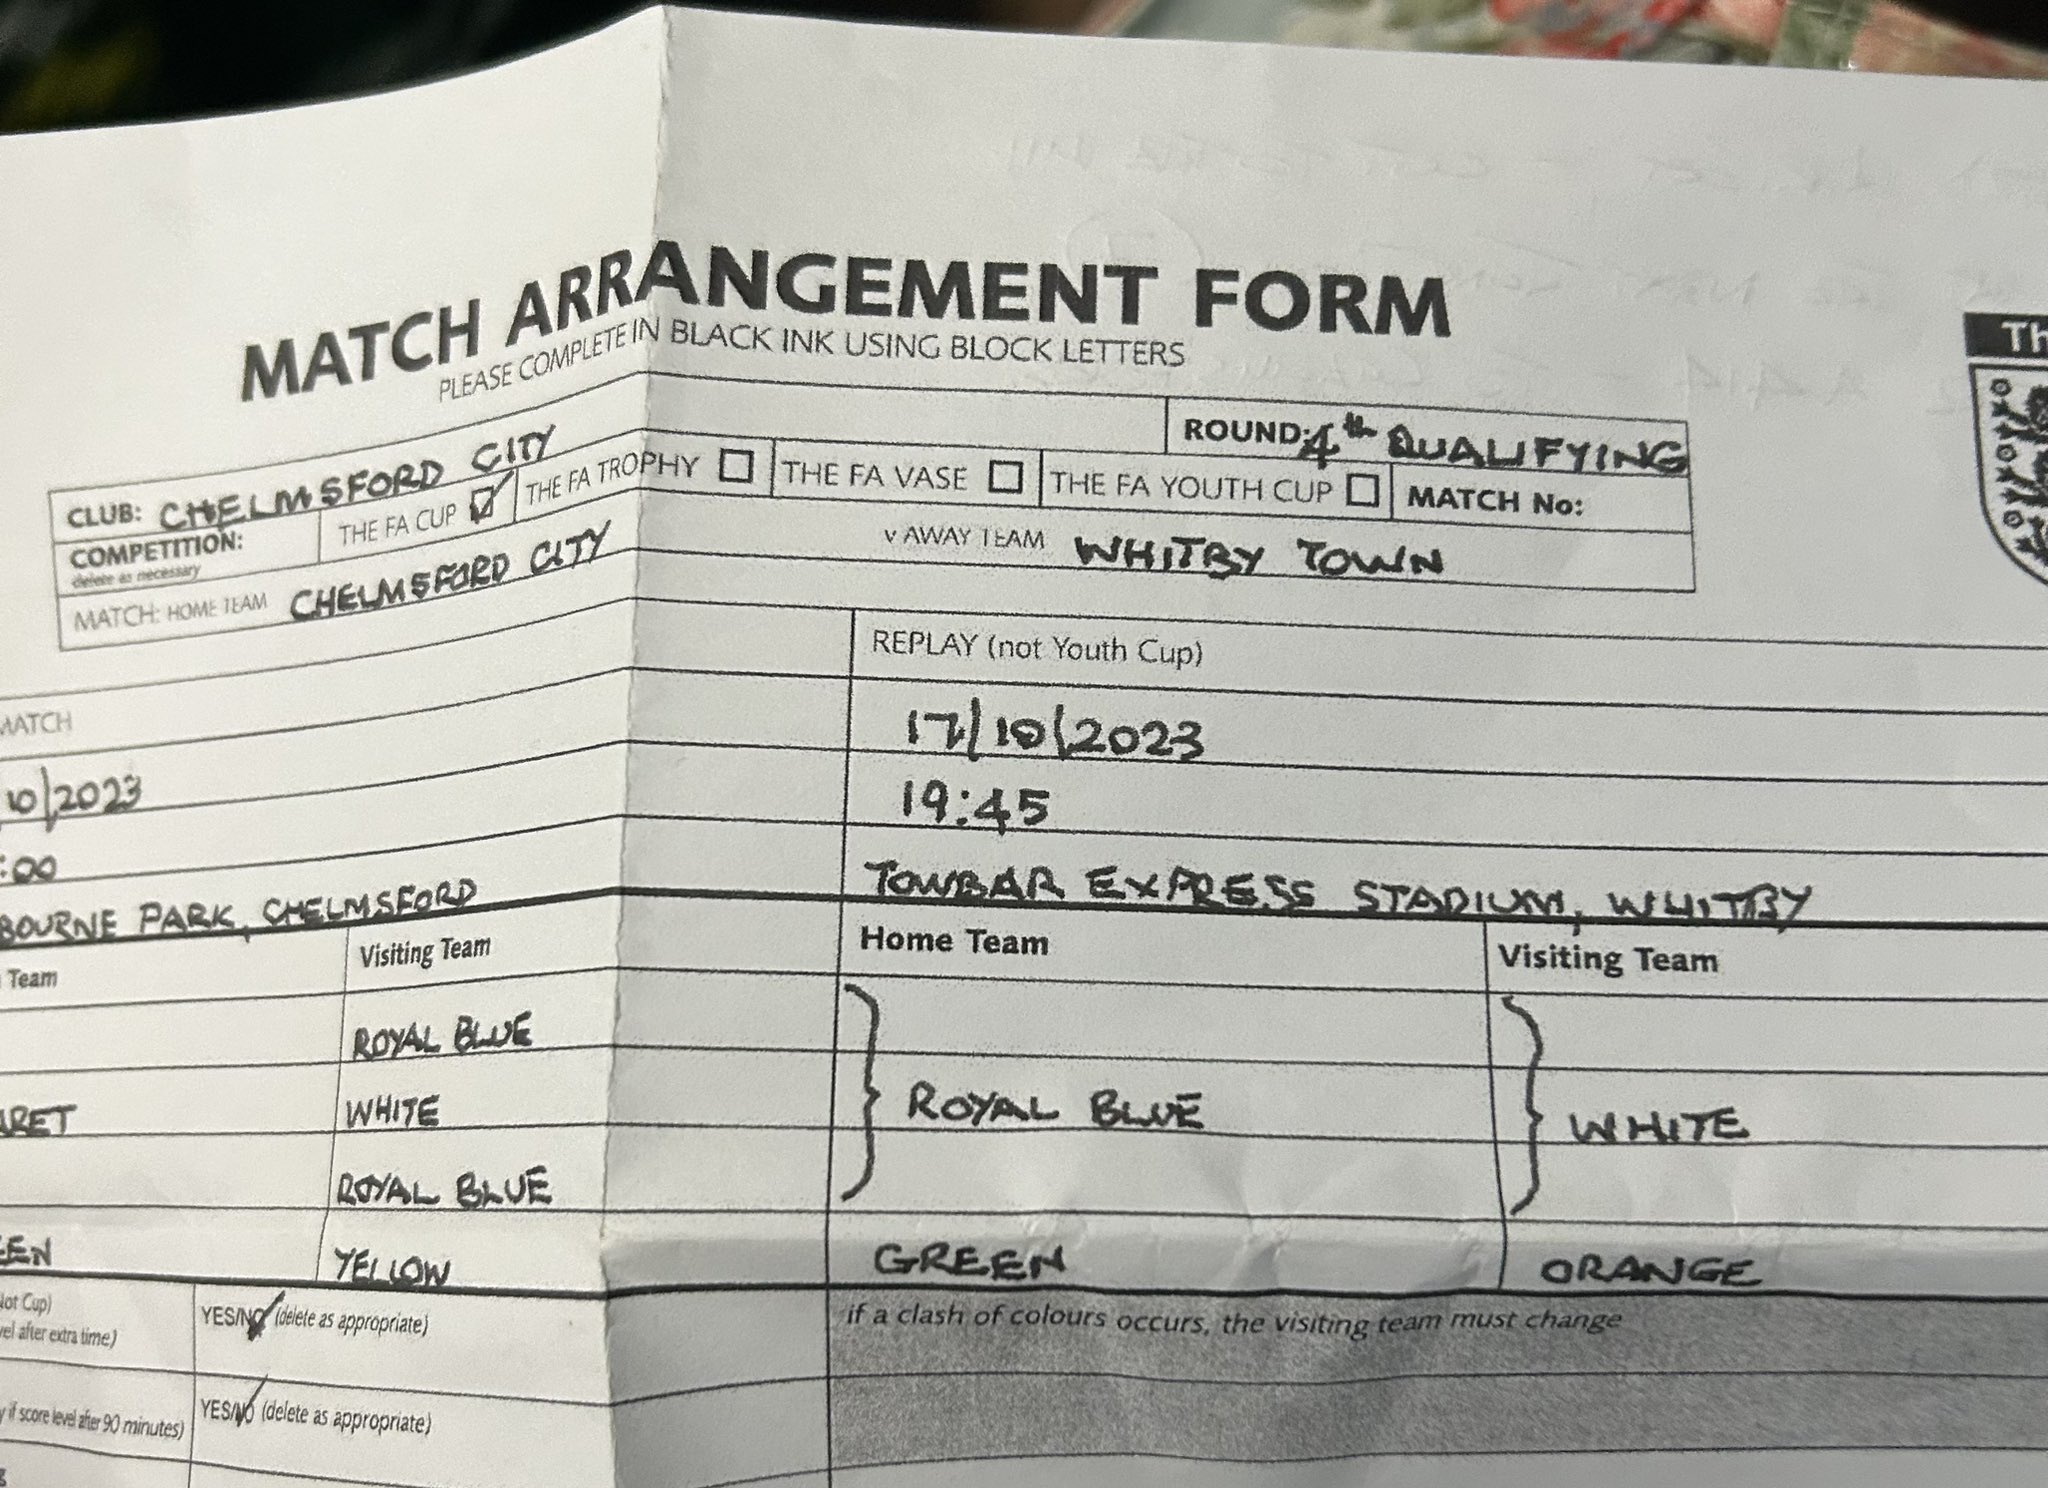 MATCH ARRANGEMENT FORM
PLEASE COMPLETE IN BLACK INK USING BLOCK LETTERS
CLUB: CHELMSFORD CITY ROUND: 4th QUALIFYING
COMPETITION: THE FA CUP THE FA TROPHY THE FA VASE THE FA YOUTH CUP MATCH No:
delete as necessary
MATCH: HOME TEAM CHELMSFORD CITY v AWAY TEAM WHITBY TOWN
MATCH REPLAY (not Youth Cup)
10/2023 17/10/2023
:00 19:45
BOURNE PARK, CHELMSFORD TOWBAR EXPRESS STADIUM, WHITBY
Team Visiting Team Home Team Visiting Team
ROYAL BLUE
ARET WHITE ROYAL BLUE WHITE
ROYAL BLUE
EEN YELLOW GREEN ORANGE
Not Cup) YES/NO (delete as appropriate) if a clash of colours occurs, the visiting team must change
vel after extra time)
y if score level after 90 minutes) YES/NO (delete as appropriate)
Th